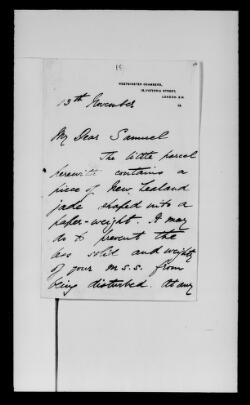 15
WESTMINSTER CHAMBERS,
VICTORIA STREET,
LONDON. S.W.
13th November
My Dear Samuel
The little parcel
herewith contains a
piece of New Zealand
jade shaped into a
paper-weight. It may
do to prevent the
less solid and weighty
of your m.s.s. from
being disturbed. At any